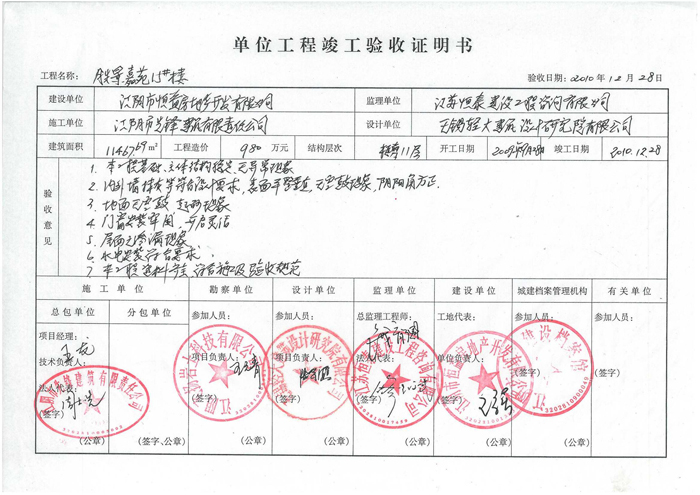 单位工程竣工验收证明书
工程名称: 嘉苑15#楼 验收日期: 2010年12月28日
建设单位 江阴市恒益房地产开发有限公司 监理单位 江苏恒泰建设工程咨询有限公司
施工单位 江阴市 建筑有限责任公司 设计单位 无锡轻大建筑设计研究院有限公司
建筑面积 工程造价 980万 结构层次 框剪11层 开工日期 竣工日期 2010.12.28
验收意见
1. 本工程基础、主体结构稳定,无异常现象
2. 内外墙 符合设计要求,表面平整 无空鼓现象,阴阳角方正.
3. 地面无空鼓 起砂现象
4. 门窗安装牢固,开启灵活
5. 屋面无渗漏现象
6. 水电安装符合要求
7. 本工程资料齐全 符合施工及验收规范
施工单位 勘察单位 设计单位 监理单位 建设单位 城建档案管理机构 有关单位
总包单位 分包单位 参加人员: 参加人员: 总监理工程师: 工地代表: 参加人员: 参加人员:
项目经理: 项目负责人: 项目负责人: 法人代表: 单位负责人:
技术负责人:
法人代表:
(签字) (签字) (签字) (签字) (签字) (签字)
(公章) (签字、公章) (公章) (公章) (公章) (公章) (签字、公章) (签字、公章)